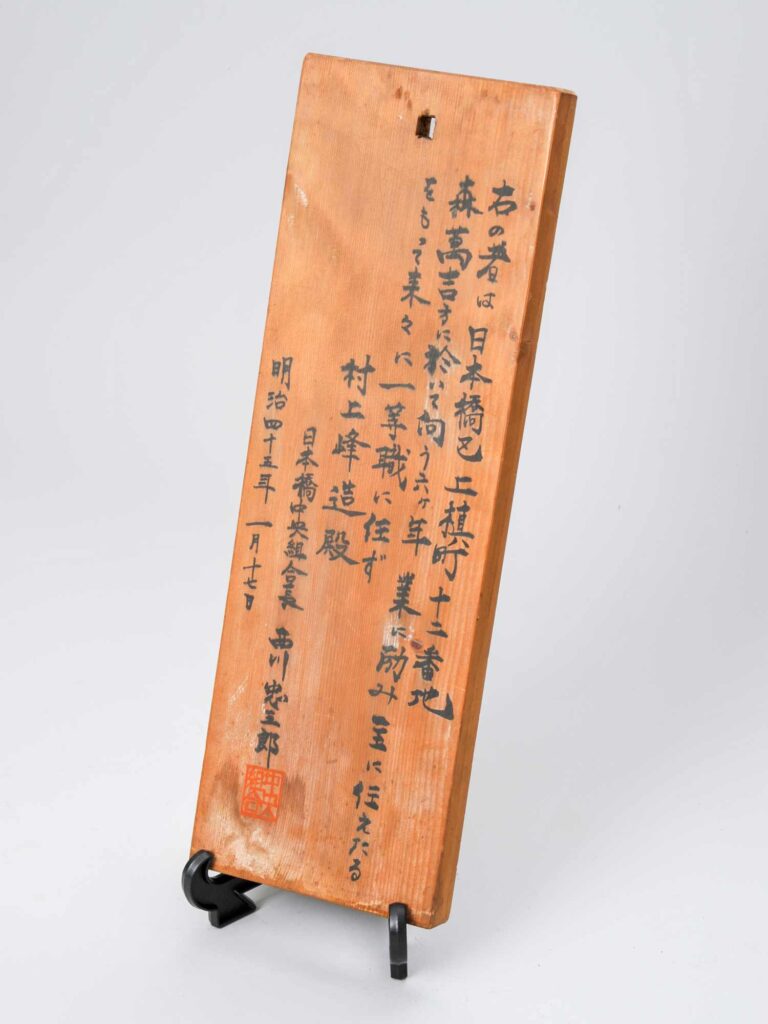 右の者は日本橋区上槙町十二番地
森萬吉方に於いて向う六ヶ年業に励み主に仕えたる
をもって来々に一等職に任ず
村上峰造殿
日本橋中央組合長 西川忠三郎
中央組合
明治四十五年 一月十七日